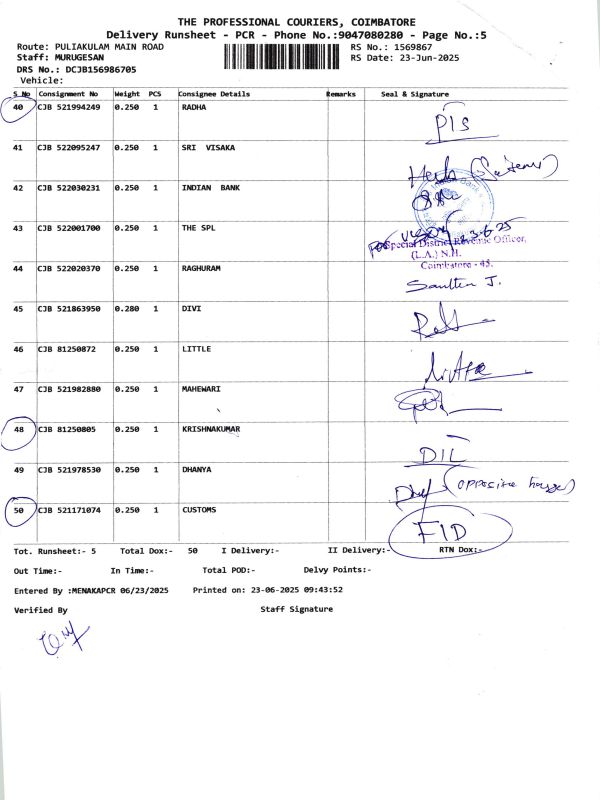 THE PROFESSIONAL COURIERS, COIMBATORE
Delivery Runsheet - PCR - Phone No.:9047080280 - Page No.:5
Route: PULIAKULAM MAIN ROAD RS No.: 1569867
Staff: MURUGESAN RS Date: 23-Jun-2025
DRS No.: DCJB156986705
Vehicle:
S No Consignment No Weight PCS Consignee Details Remarks Seal & Signature
40 CJB 521994249 0.250 1 RADHA
PIS
41 CJB 522095247 0.250 1 SRI VISAKA
42 CJB 522030231 0.250 1 INDIAN BANK
43 CJB 522001700 0.250 1 THE SPL
Special District Revenue Officer,
(L.A.) N.H.
Coimbatore - 45.
44 CJB 522020370 0.250 1 RAGHURAM
45 CJB 521863950 0.280 1 DIVI
46 CJB 81250872 0.250 1 LITTLE
47 CJB 521982880 0.250 1 MAHEWARI
48 CJB 81250805 0.250 1 KRISHNAKUMAR
DIL
49 CJB 521978530 0.250 1 DHANYA
50 CJB 521171074 0.250 1 CUSTOMS
FID
Tot. Runsheet:- 5 Total Dox:- 50 I Delivery:- II Delivery:- RTN Dox:-
Out Time:- In Time:- Total POD:- Delvy Points:-
Entered By :MENAKAPCR 06/23/2025 Printed on: 23-06-2025 09:43:52
Verified By Staff Signature